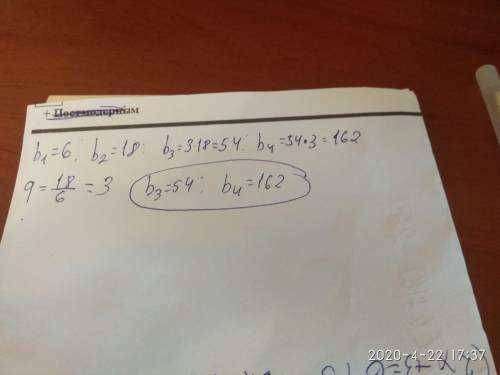 + Постмодернизм
b₁=6; b₂=18; b₃=3·18=54; b₄=54•3=162
q = 18/6 = 3 b₃=54; b₄=162
2020-4-22 17:37